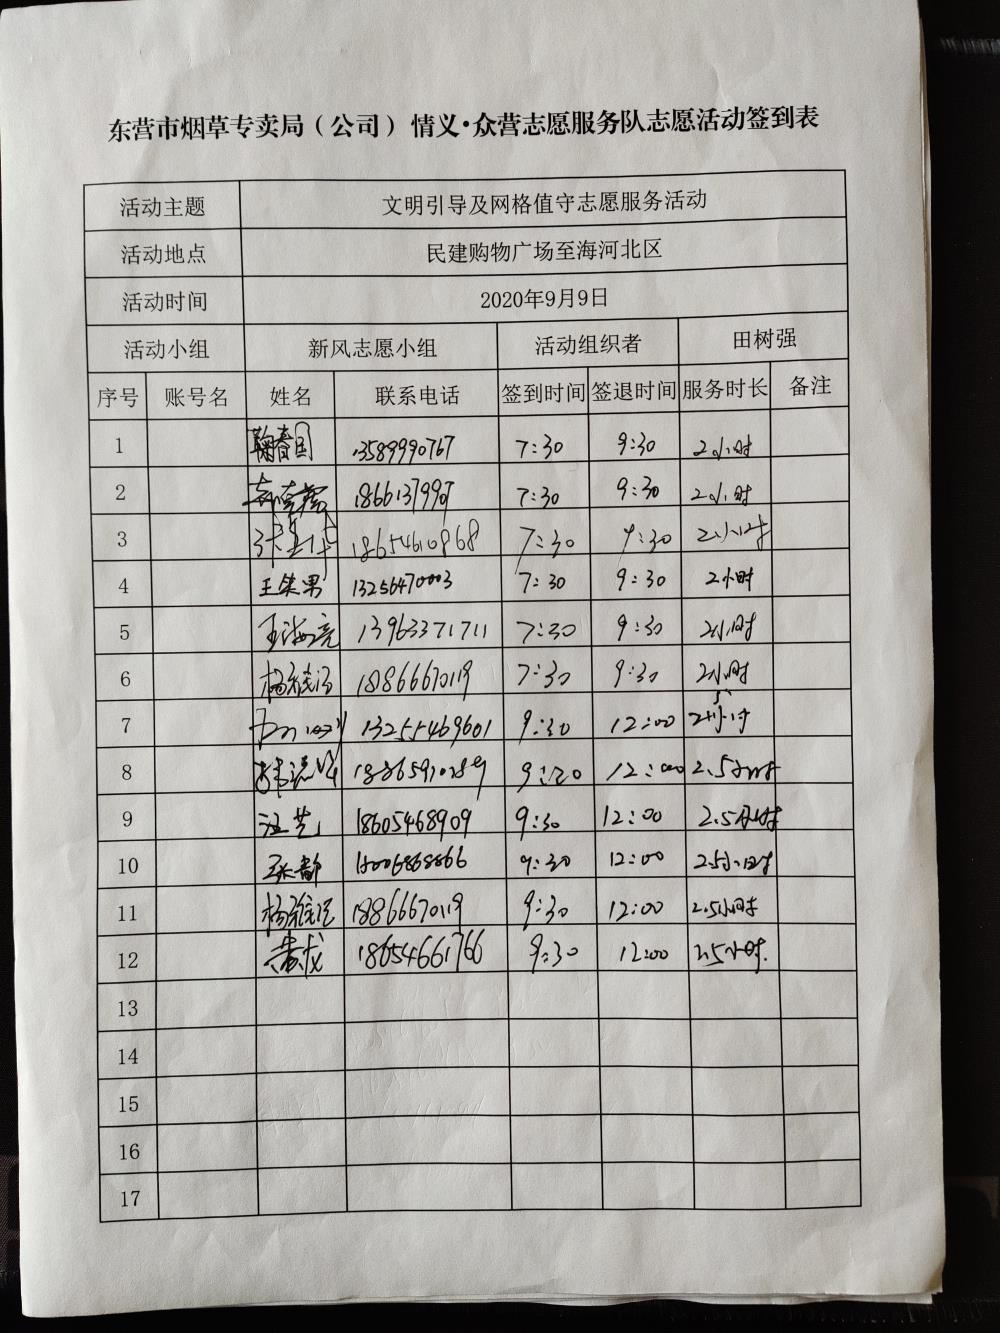 东营市烟草专卖局（公司）情义·众营志愿服务队志愿活动签到表
活动主题 文明引导及网格值守志愿服务活动
活动地点 民建购物广场至海河北区
活动时间 2020年9月9日
活动小组 新风志愿小组 活动组织者 田树强
序号 账号名 姓名 联系电话 签到时间 签退时间 服务时长 备注
1 鞠春国 13589990767 7:30 9:30 2小时
2 7:30 9:30 2小时
3 18654610868 7:30 9:30 2小时
4 13256470003 7:30 9:30 2小时
5 王海亮 13963371711 7:30 9:30 2小时
6 18866670119 7:30 9:30 2小时
7 13255469601 9:30 12:00
8 9:30 12:00 2.5小时
9 汪芝 18605468909 9:30 12:00 2.5小时
10 9:30 12:00 2.5小时
11 18866670119 9:30 12:00 2.5小时
12 黄龙 18654661766 9:30 12:00 2.5小时.
13
14
15
16
17